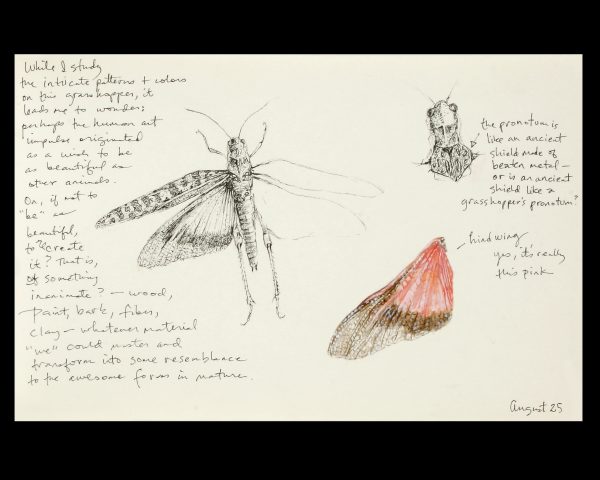 While I study
the intricate patterns + colors
on this grasshopper, it
leads me to wonder:
perhaps the human art
impulse originated
as a wish to be
as beautiful as
other animals.
Or, if not to
"be" as
beautiful,
to "create
it? That is,
of something
inanimate? — wood,
paint, bark, fiber,
clay — whatever material
"we" could master and
transform into some resemblance
to the awesome forms in nature.
the pronotum is
like an ancient
shield made of
beaten metal —
or is an ancient
shield like a
grasshopper's pronotum?
hind wing,
yes, it's really
this pink
August 25